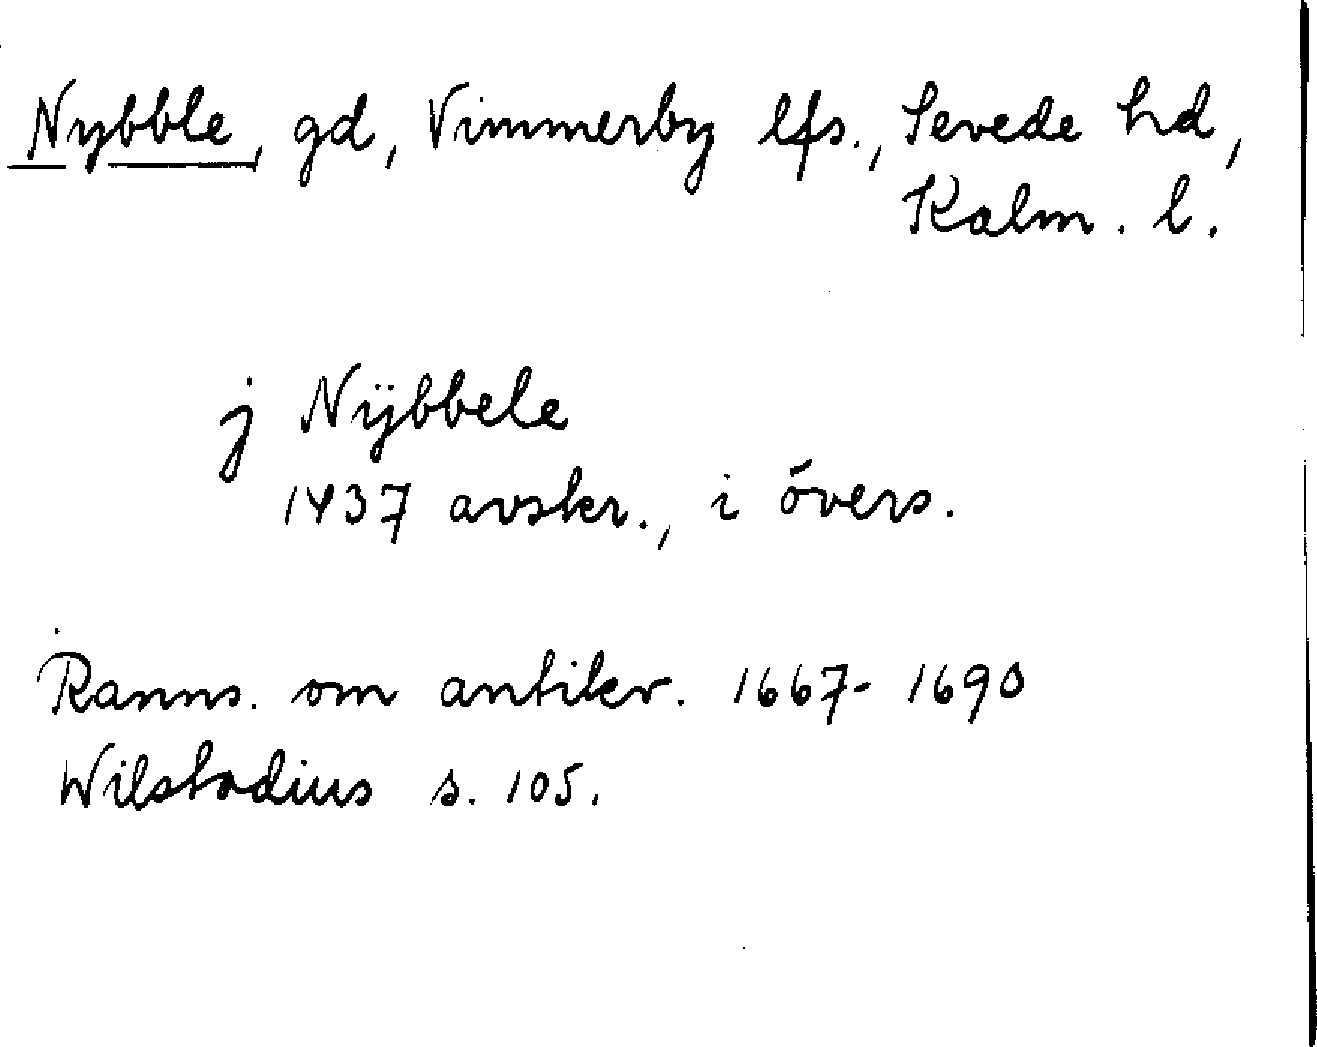 Nybble, gd, Vimmerby lfs., Sevede hd,
Kalm. l.
j Nÿbbele
1437 avskr., i övers.
Ranns. om antikv. 1667-1690
Wilstadius s. 105.